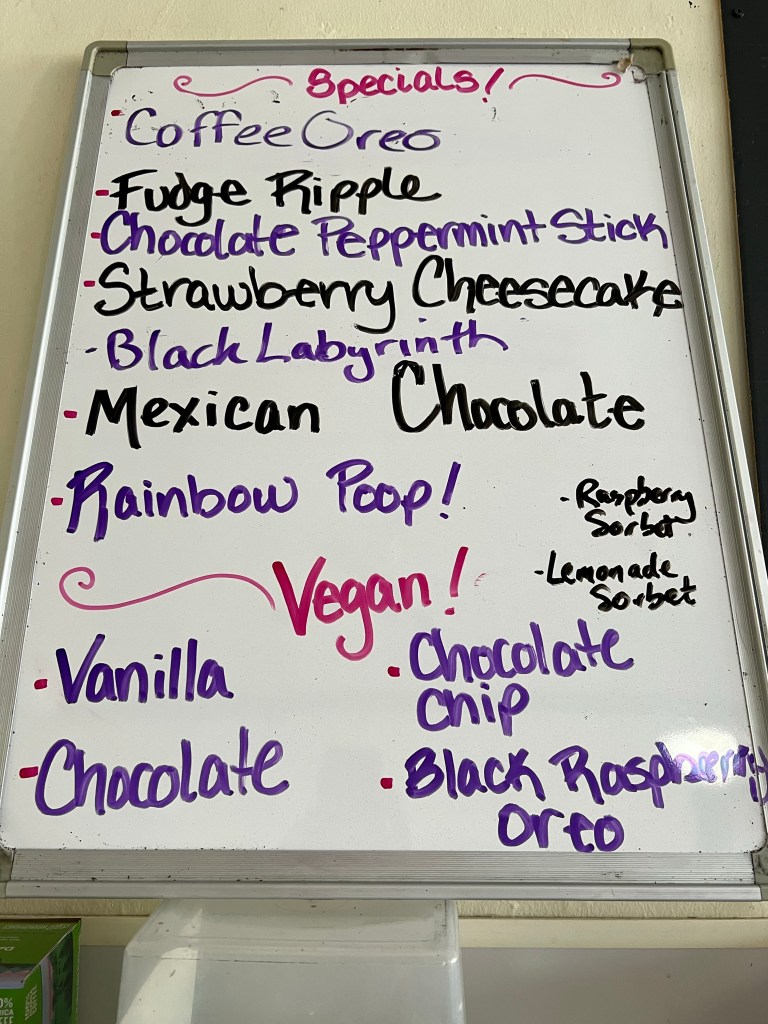 Specials!
- Coffee Oreo
- Fudge Ripple
- Chocolate Peppermint Stick
- Strawberry Cheesecake
- Black Labyrinth
- Mexican Chocolate
- Rainbow Poop!
- Raspberry
Sorbet
- Lemonade
Sorbet
Vegan!
- Vanilla
- Chocolate
- Chocolate
Chip
- Black Raspberry
Oreo